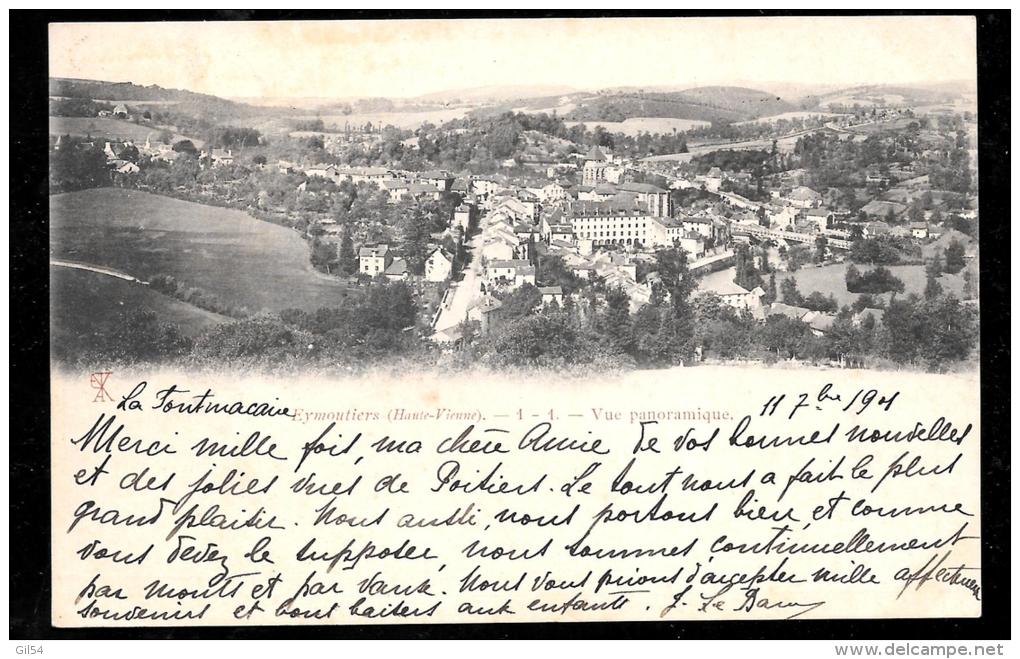 La Fontmacaire
Eymoutiers (Haute-Vienne). — 1 - 1. — Vue panoramique.
11 7bre 1901
Merci mille fois, ma chère Amie de vos bonnes nouvelles
et des jolies vues de Poitiers. Le tout nous a fait le plus
grand plaisir. Nous aussi, nous portons bien, et comme
vous devez le supposer, nous sommes continuellement
par monts et par vaux. Nous vous prions d'accepter mille affectueux
souvenirs et bons baisers aux enfants. J. Le
Gil54
delcampe.net